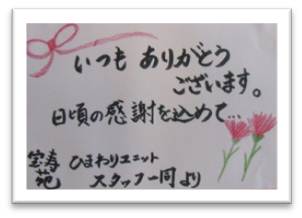 いつも ありがとう
ございます。
日頃の感謝を込めて…
宝寿苑 ひまわりユニット
スタッフ一同より